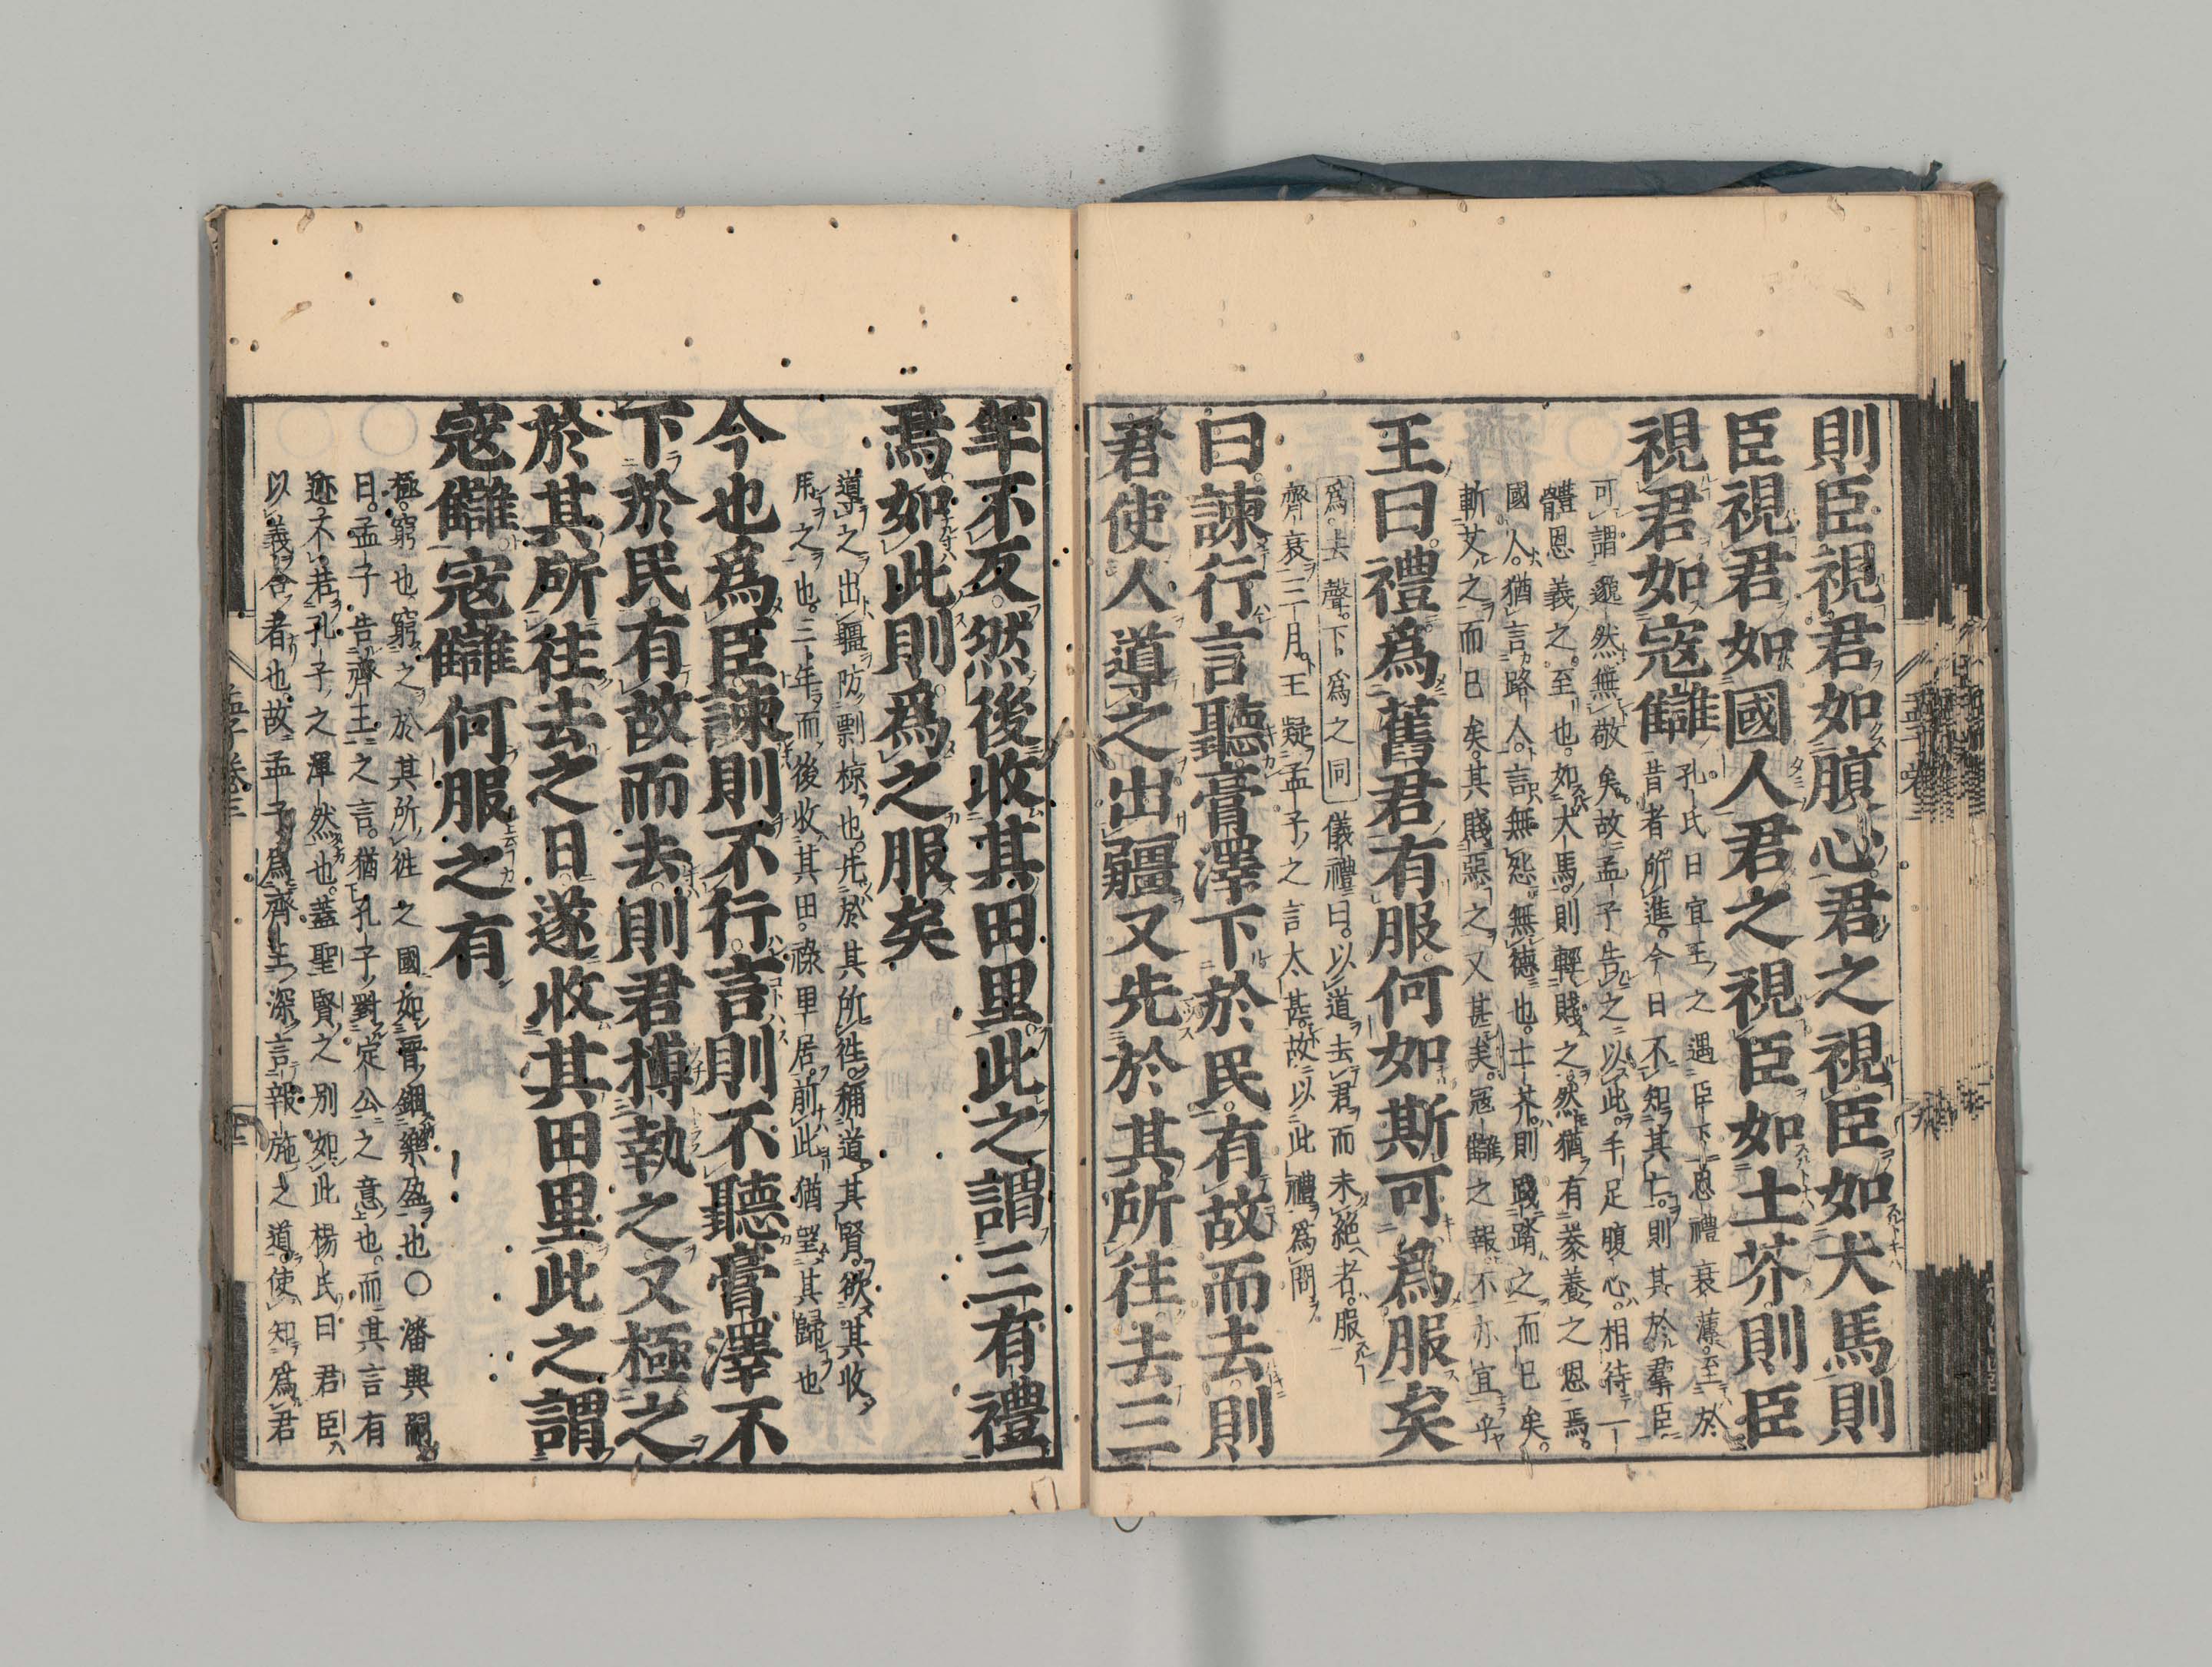 則臣視君如腹心君之視臣如犬馬則
臣視君如國人君之視臣如土芥則臣
視君如寇讎
孔氏曰宣王之遇臣下恩禮衰薄至於
昔者所進今日不知其亡則其於羣臣
可謂邈然無敬矣故孟子告之以此手足腹心相待一
體恩義之至也如犬馬則輕賤之然猶有豢養之恩焉
國人猶言路人言無怨無德也土芥則踐踏之而已矣
斬艾之而已矣其賤惡之又甚矣寇讎之報不亦宜乎
王曰禮爲舊君有服何如斯可爲服矣
爲去聲下爲之同
儀禮曰以道去君而未絕者服
齊衰三月王疑孟子之言太甚故以此禮爲問
曰諫行言聽膏澤下於民有故而去則
君使人導之出疆又先於其所往去三
年不反然後收其田里此之謂三有禮
焉如此則爲之服矣
導之出疆防剽掠也先於其所往稱道其賢欲其收
用之也三年而後收其田祿里居前此猶望其歸也
今也爲臣諫則不行言則不聽膏澤不
下於民有故而去則君搏執之又極之
於其所往去之日遂收其田里此之謂
寇讎寇讎何服之有
極窮也窮之於其所往之國如晉錮欒盈也○潘興嗣
曰孟子告齊王之言猶孔子對定公之意也而其言有
迹不若孔子之渾然也蓋聖賢之別如此楊氏曰君臣
以義合者也故孟子爲齊王深言報施之道使知爲君
孟子卷三